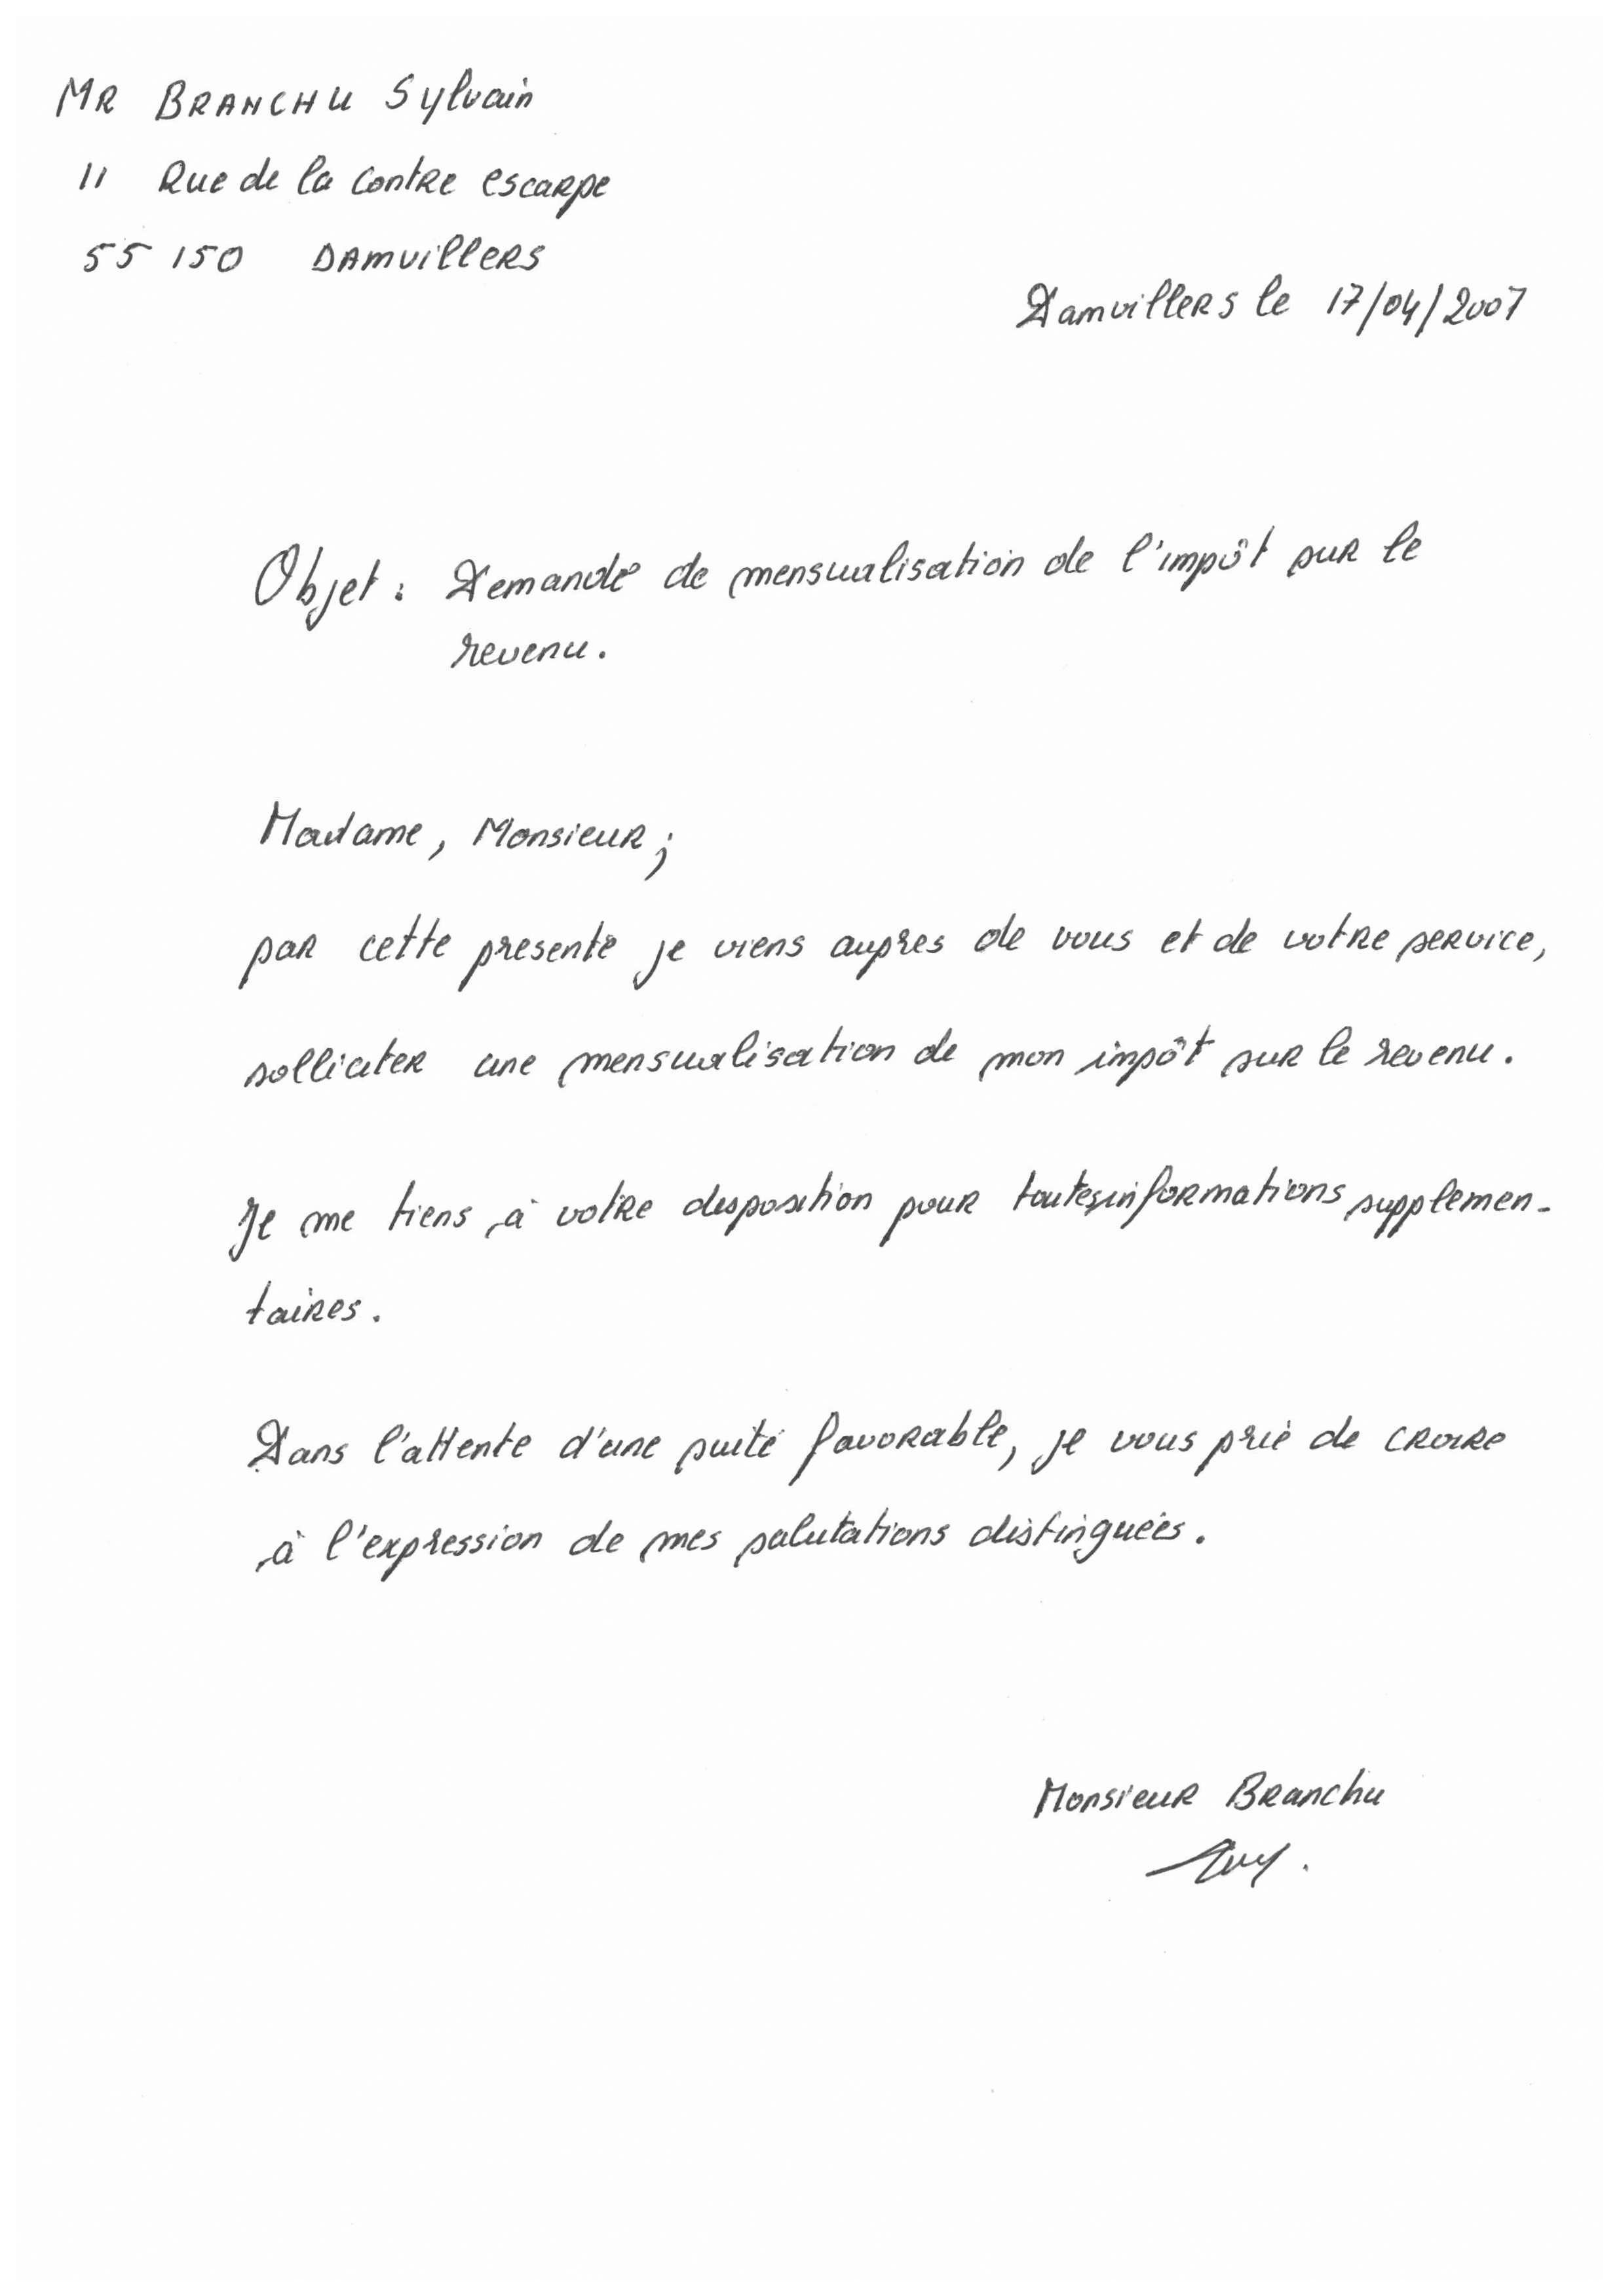 MR BRANCHU Sylvain
11 Rue de la contre escarpe
55 150 DAMVILLERS
Damvillers le 17/04/2007
Objet : Demande de mensualisation de l'impôt sur le
revenu.
Madame, Monsieur ;
par cette presente je viens aupres de vous et de votre service,
solliciter une mensualisation de mon impôt sur le revenu.
Je me tiens à votre disposition pour toutes informations supplemen-
taires.
Dans l'attente d'une suite favorable, je vous prie de croire
à l'expression de mes salutations distinguées.
Monsieur Branchu